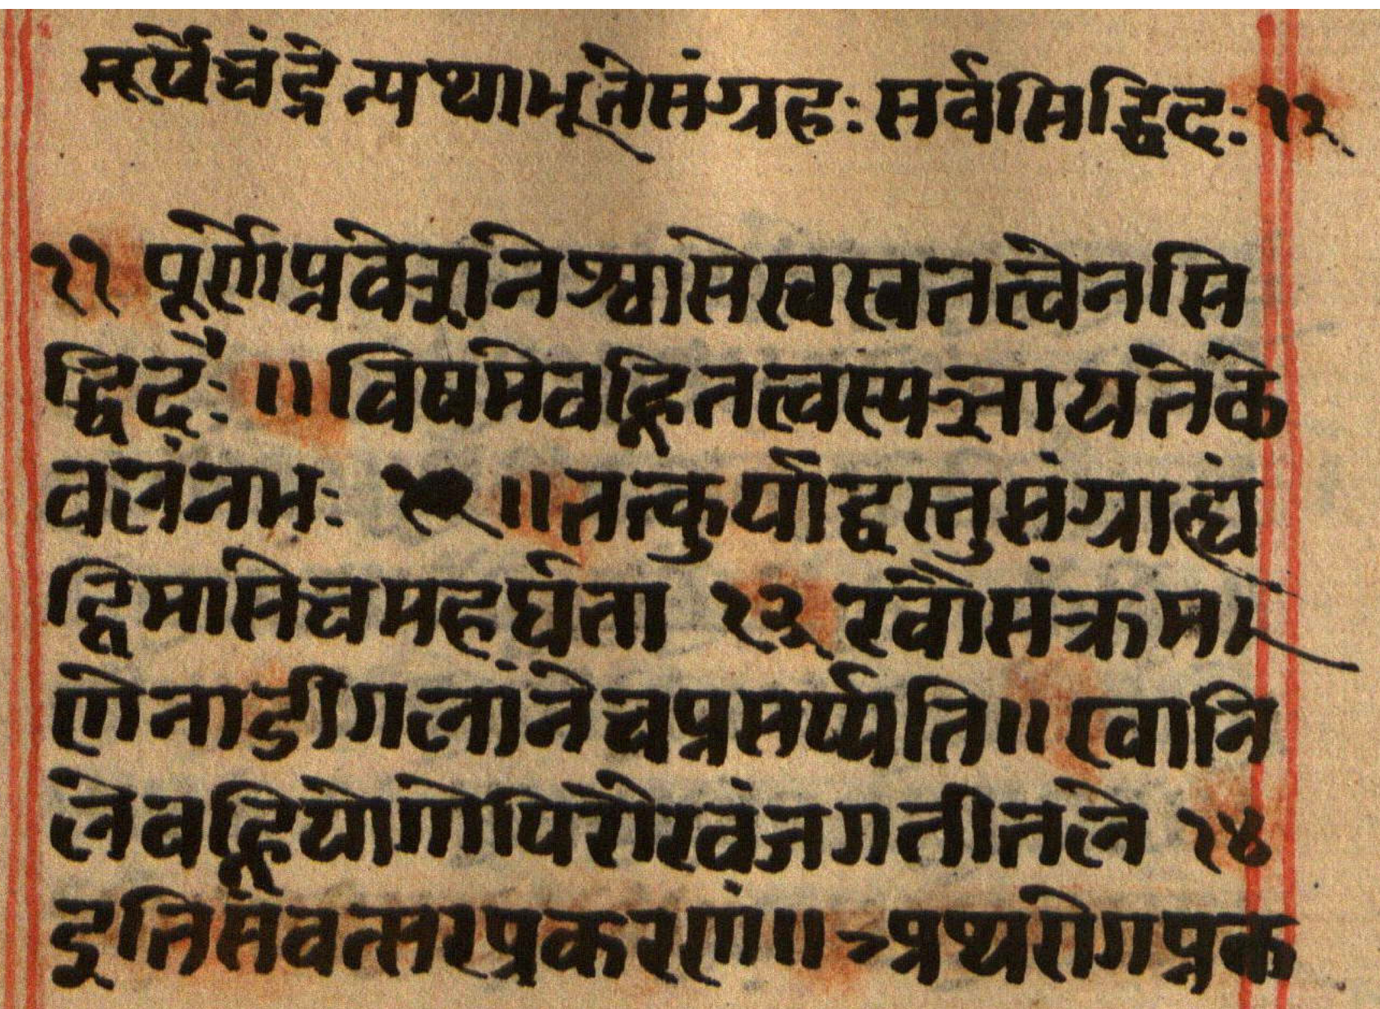 सूर्येचंद्रेन्यथाभूतेसंग्रहः सर्वसिद्धिदः १२
११ पूर्णेप्रवेशनेश्वासेस्वस्वतत्वेनसि
द्धिदः ॥ विषमेवह्नितत्वस्पज्ञायतेके
वलंनभः १२ ॥ तत्कुर्याद्वस्तुसंग्राह्यं
द्विमासेचमहर्घता १३ रवौसंक्रम
णेनाडीगलांनेचप्रसर्प्पति ॥ खानि
लेवह्नियोगेपिरौरवंजगतीतले १४
इतिसंवत्सरप्रकरणं ॥ अथरोगप्रक